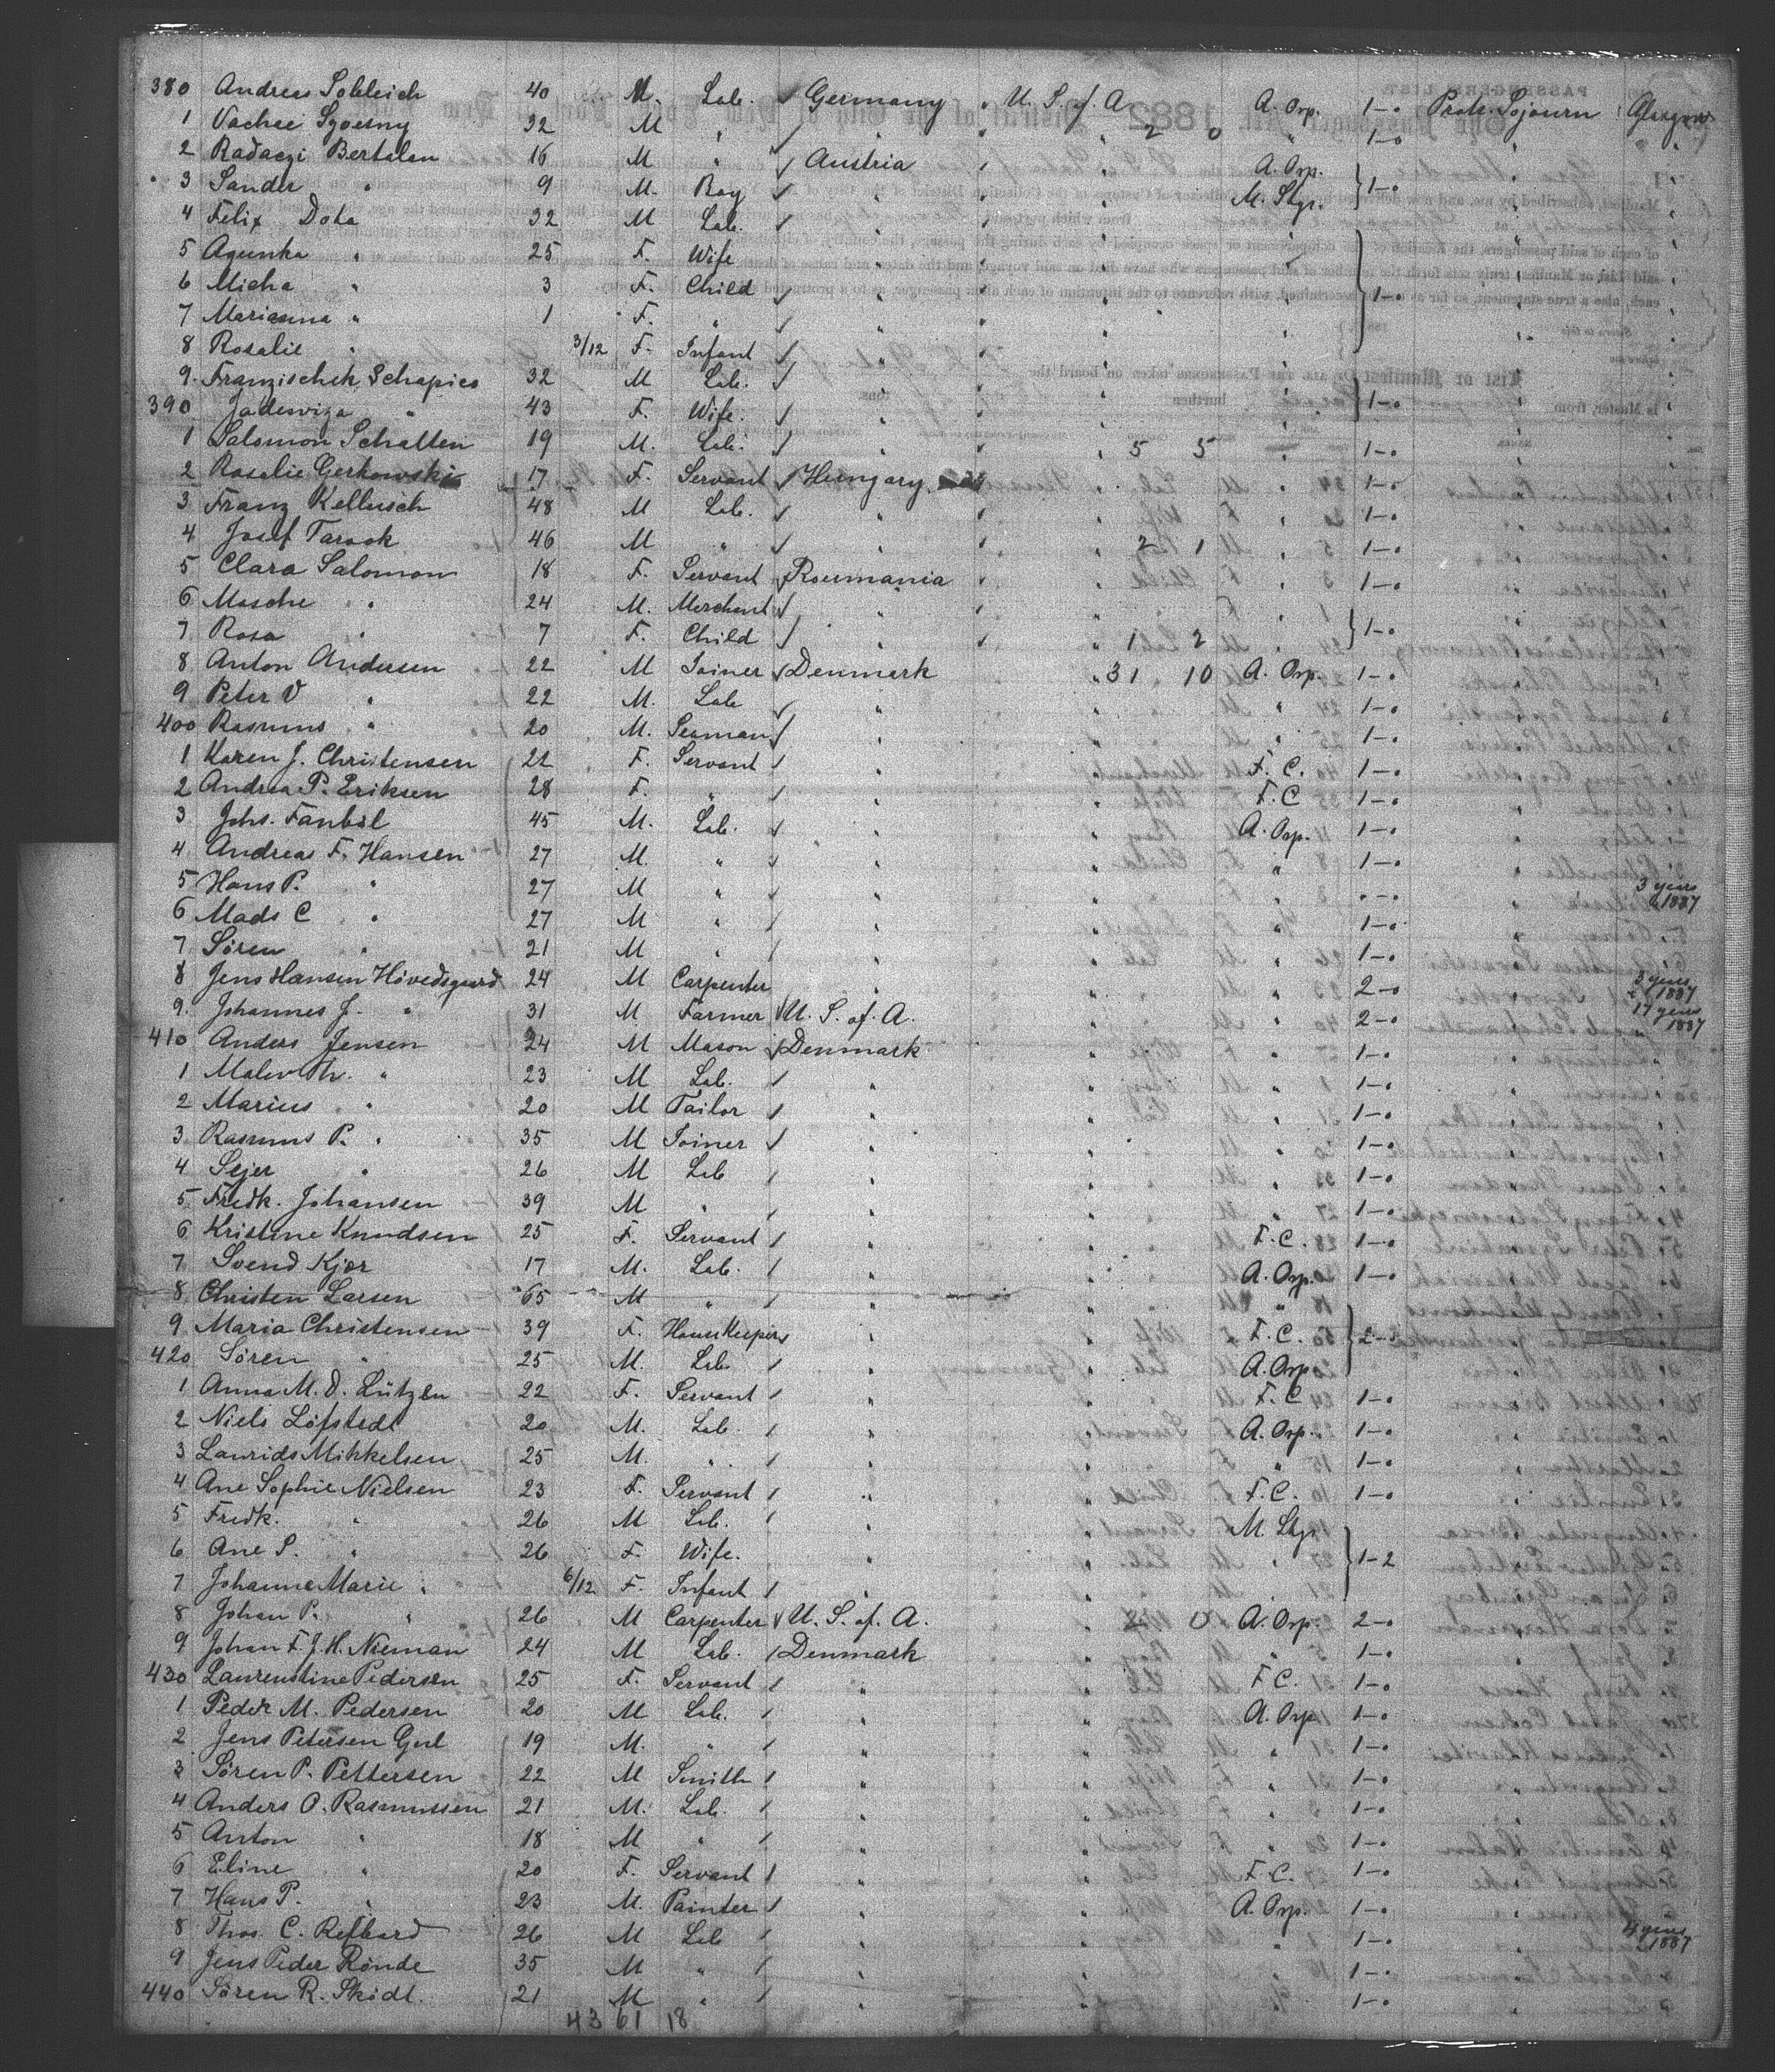 380 Andreas Schleich 40 M. Lab. Germany " U. S. of A A. Orp. 1-0 Protr. Sojourn Glasgow
1 Vachae Szoesny 32 M " " " " 2 0 " 1-0 " "
2 Radaczi Bertalan 16 M " Austria " " A. Orp. 1-0 " "
3 Sander " 9 M. Boy " " " M. Stgr. " "
4 Felix Dota 32 M Lab. " " " " " "
5 Agunka " 25 F. Wife " " " " " "
6 Micha " 3 F. Child " " " " 1-0 " "
7 Marianna " 1 F. " " " " " " "
8 Rosalie " 3/12 F. Infant " " " " " "
9. Franzischek Schapies 32 M Lab. " " " " " "
390 Jadewiza " 43 F. Wife. " " " " 1-0 " "
1 Salomon Schatten 19 M. Lab. " " " 5 5 " 1-0 " "
2 Rosalie Gerkowski 17 F. Servant Hungary " " " 1-0 " "
3 Franz Kellusch 48 M Lab. " " " " 1-0 " "
4 Josef Tarack 46 M " " " " 2 1 " 1-0 " "
5 Clara Salomon 18 F. Servant Roumania " " " 1-0 " "
6 Mosche " 24 M. Merchant " " " " " "
7 Rosa " 7 F. Child " " " 1 2 " 1-0 " "
8 Anton Andersen 22 M Joiner Denmark " 31 10 A. Orp. 1-0 " "
9 Peter V " 22 M. Lab " " " " 1-0 " "
400 Rasmus " 20 M. Seaman " " " " 1-0 " "
1 Karen J. Christensen 22 F. Servant " " F. C. 1-0 "
2 Andrea P. Eriksen 28 F. " " " F. C 1-0 "
3 Johs. Fanböl 45 M. Lab. " " A. Orp. 1-0 "
4 Andreas F. Hansen 27 M. " " " " 1-0 "
5 Hans P. " 27 M " " " " "-0 " 3 years 1887
6 Mads C " 27 M " " " " 1-0 "
7 Sören " 21 M " " " " 1-0 "
8 Jens Hansen Hovedsgaard 24 M Carpenter " " " 2-0 " 3 years 1887
9. Johannes J. " 31 M Farmer U. S. of. A. " " 2-0 " 17 years 1887
410 Anders Jensen 24 M Mason Denmark " " 1-0 "
1 Th. " 23 M Lab. " " " 1-0 "
2 Marius " 20 M Tailor " " " 1-0 "
3 Rasmus P. " 35 M Joiner " " " 1-0 "
4 Sejer " 26 M Lab " " " 1-0 "
5 Fredk. Johansen 39 M " " " " 1-0 "
6 Kristine Knudsen 25 F. Servant " " F. C. 1-0 "
7 Svend Kjær 17 M. Lab. " " A. Orp. 1-0 "
8 Christen Larsen 65 M " " " " "
9 Maria Christensen 39 F. House Keeper " " F. C. 2-0 "
420 Sören " 25 M. Lab " " A. Orp "
1 Anna M. D. Lützen 22 F. Servant " " F. C 1-0 "
2 Niels Löfstedt 20 M. Lab. " " A. Orp. 1-0 "
3 Laurids Mikkelsen 25 M. " " " " 1-0 "
4 Ane Sophie Nielsen 23 F. Servant " " F. C. 1-0 "
5 Fredk. " 26 M Lab. " " M. Stgr "
6 Ane S. " 26 F. Wife. " " 1-2 "
7 Johanne Marie " 6/12 F. Infant " " "
8 Johan P. " 26 M Carpenter U. S. of. A. " 2 0 A. Orp. 2-0 "
9 Johan F. J. H. Nieman 24 M Lab. Denmark " " 1-0 "
430 Laurenstine Pedersen 25 F. Servant " " F. C. 1-0 "
1 Peder M. Pedersen 20 M Lab. " " A. Orp 1-0 "
2 Jens Petersen 19 M. " " " " 1-0 "
3 Sören P. Pettersen 22 M Smith " " " 1-0 "
4 Anders O. Rasmussen 21 M. Lab. " " " 1-0 "
5 Anton " 18 M " " " " 1-0 "
6 Eline " 20 F. Servant " " F. C. 1-0 "
7 Hans P. " 23 M. Painter " " A. Orp. 1-0 "
8 Thos. C. 26 M Lab " " " 1-0 " 4 years 1887
9 Jens Peder Rönde 35 M " " " " 1-0 "
440 Sören R. Sködt. 21 M " " " " 1-0 "
43 61 18